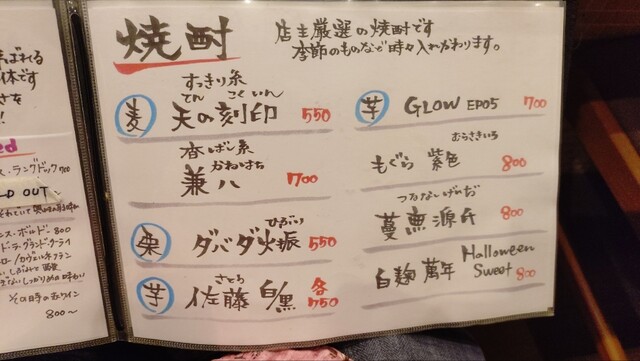 ばれる
体です
さを
!
ed
ス・ラングドック 700
LD OUT
ンス・ボルドー 800
ドラ・グランド・クーティ
その日の赤ワイン
800~
焼酎
店主厳選の焼酎です
季節のものなど時々入れかわります。
すっきり系
てん こくいん
麦 天の刻印 550
香ばし系
かねはち
兼八 700
ひぶり
栗 ダバダ火振 550
さとう
芋 佐藤 白/黒 各750
芋 GLOW EP05 700
むらさきいろ
もぐら 紫色 800
つるないげんじ
蔓無源氏 800
白麹 萬年 Halloween Sweet 800